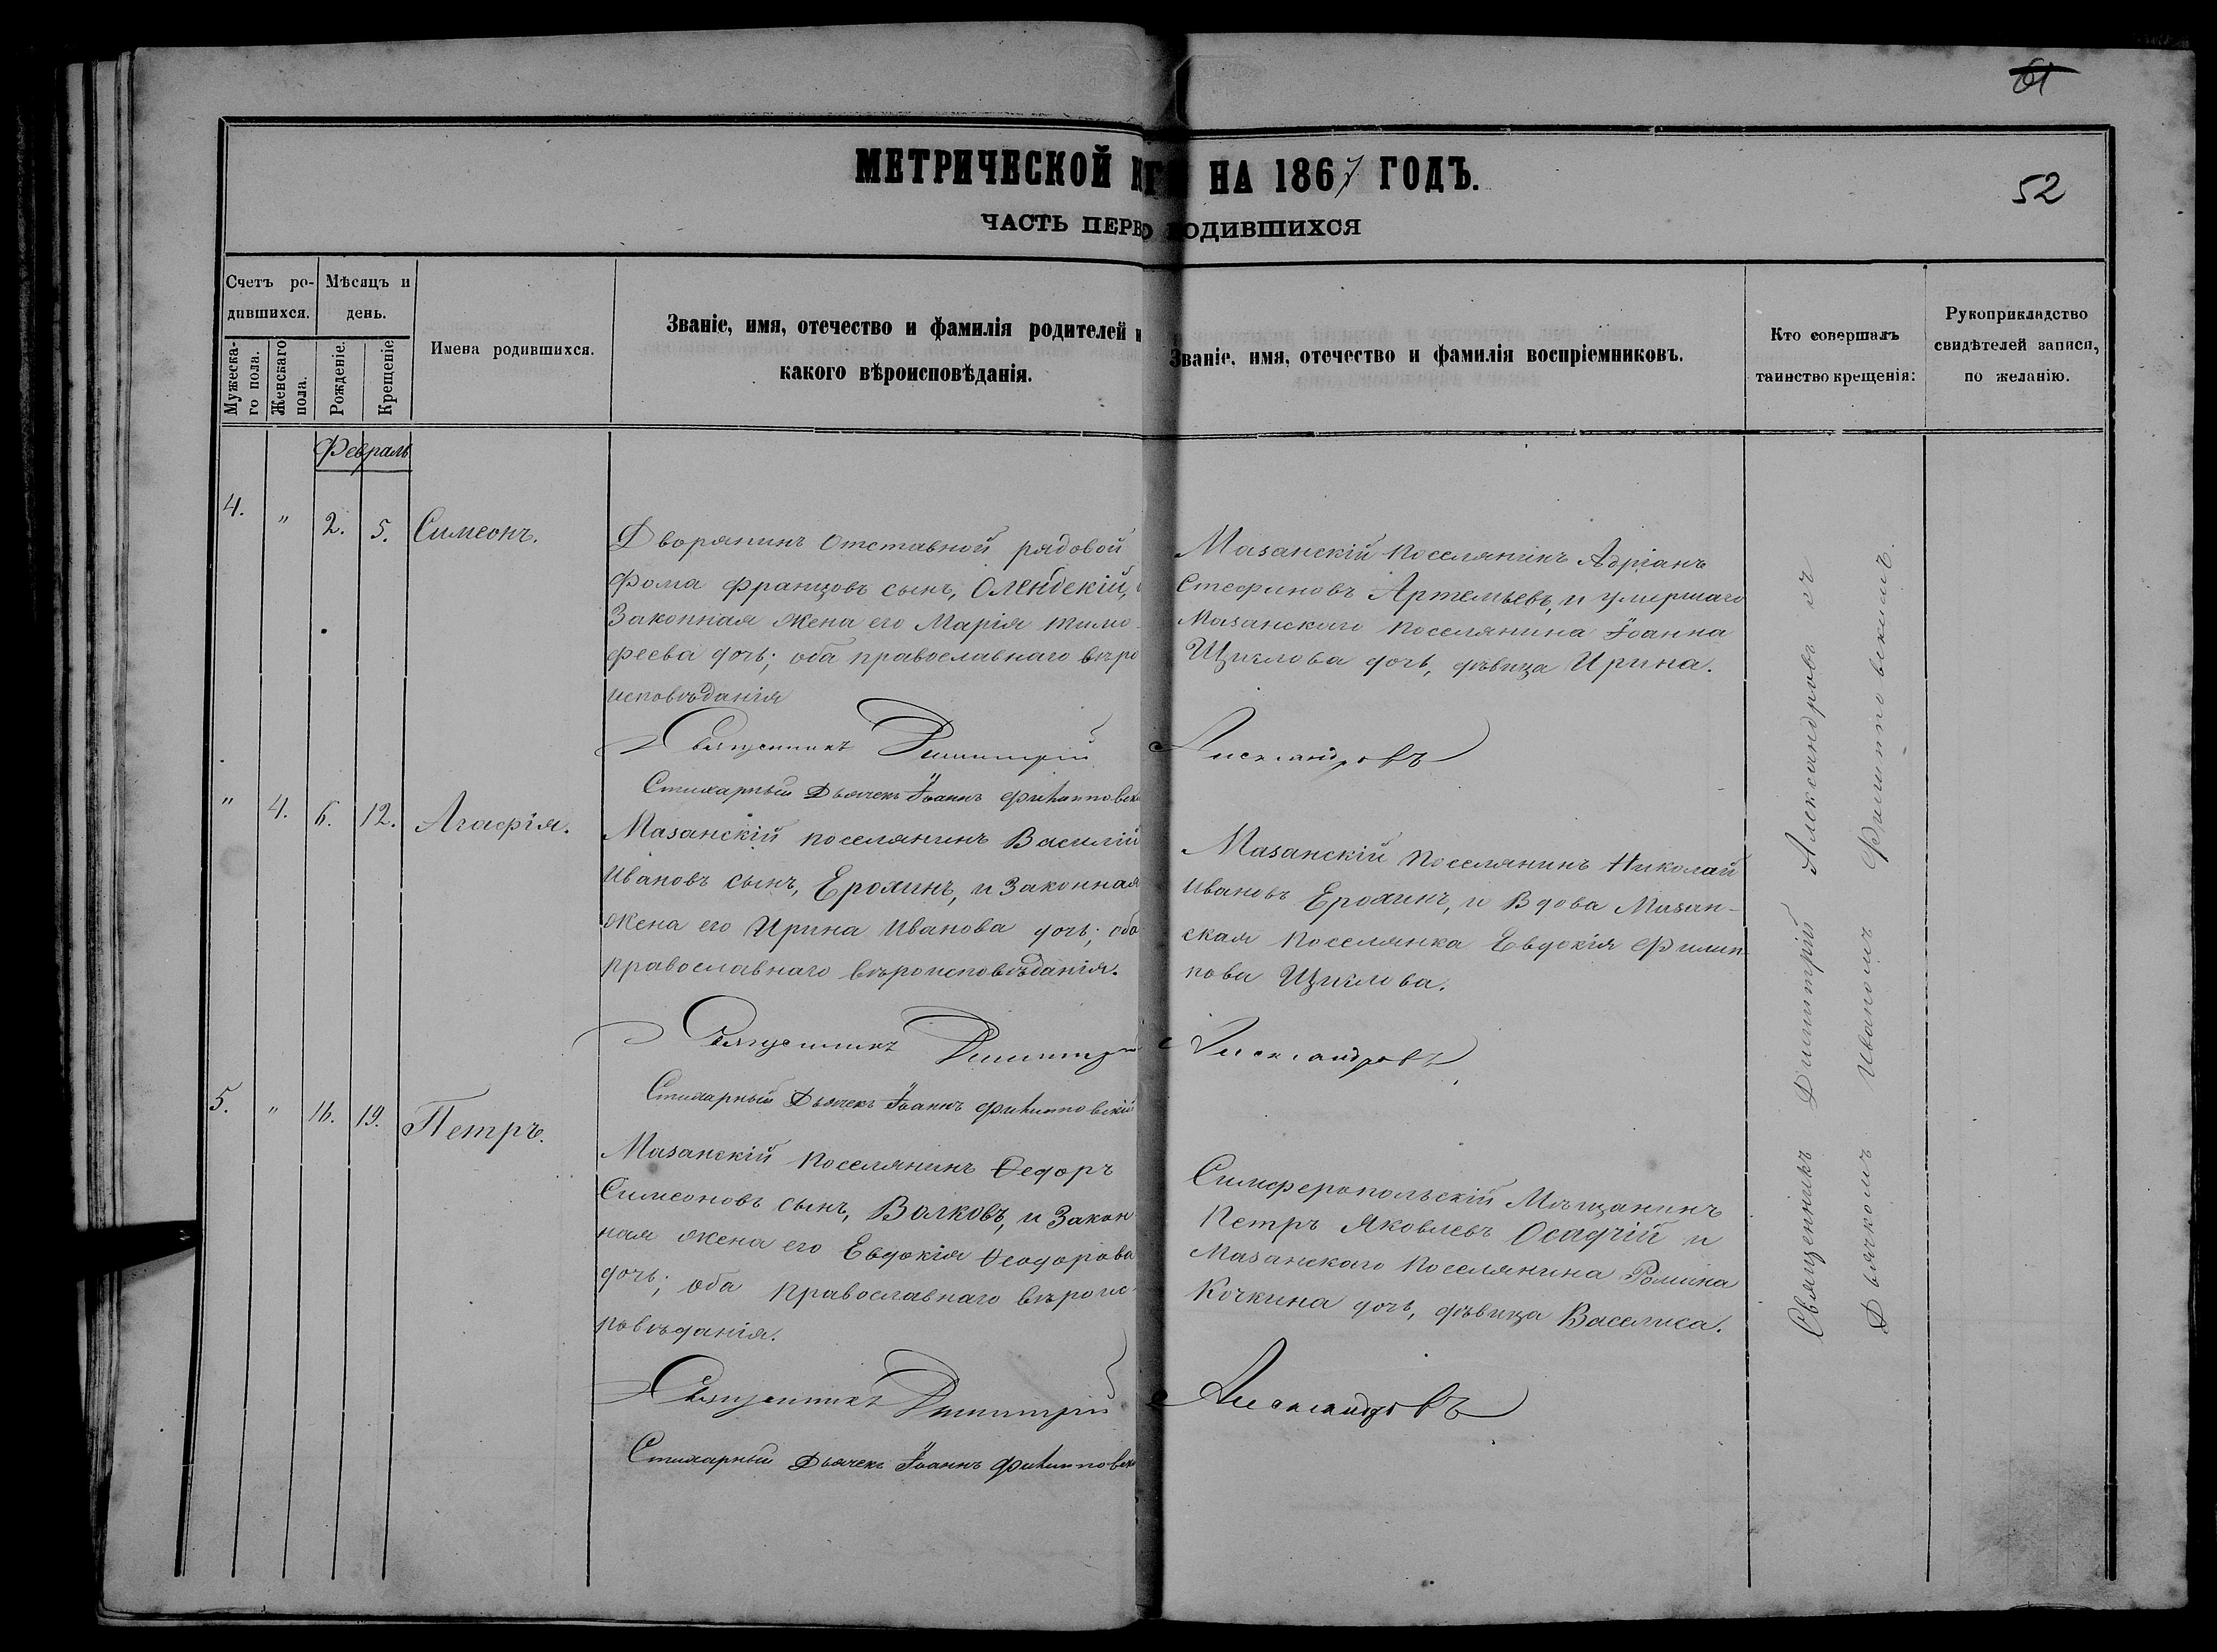 61
МЕТРИЧЕСКОЙ К
ГИ НА 1867 ГОДЪ.
52
ЧАСТЬ ПЕРВ
О РОДИВШИХСЯ
Счетъ ро-
дившихся.
Мужеска-
го пола.
Женскаго
пола.
Мѣсяцъ и
день.
Рожденіе.
Крещеніе.
Имена родившихся.
Званіе, имя, отечество и фамилія родителей и
какого вѣроисповѣданія.
Званіе, имя, отечество и фамилія воспріемниковъ.
Кто совершалъ
таинство крещенія:
Рукоприкладство
свидѣтелей записи,
по желанію.
Февраль
4. " 2. 5. Симеонъ.
Дворянинъ Отставной рядовой
Фома Францовъ сынъ, Олендскій, и
Законная жена его Марія Тимо-
феева дочь; оба православнаго вѣро
исповѣданія
Мазанскій поселянинъ Адріанъ
Стефановъ Артемьевъ, и умершаго
Мазанскаго поселянина Іоанна
Щиглова дочь, дѣвица Ирина.
Священникъ Димитрій Александровъ
Стихарный Дьячекъ Іоаннъ Филипповск
" 4. 6. 12. Агафія.
Мазанскій поселянинъ Василій
Ивановъ сынъ, Ерохинъ, и Законная
жена его Ирина Иванова дочь; оба
православнаго вѣроисповѣданія.
Мазанскій Поселянинъ Николай
Ивановъ Ерохинъ, и Вдова Мазан-
ская поселянка Евдокія Филип-
пова Щиглова.
Священникъ Димитрій Александровъ
Стихарный Дьячекъ Іоаннъ Филипповскій
5. " 16. 19. Петръ.
Мазанскій поселянинъ Ѳедоръ
Симеоновъ сынъ, Волковъ, и Закон
ная жена его Евдокія Ѳеодорова
дочь; оба православнаго вѣроис-
повѣданія.
Симферопольскій Мѣщанинъ
Петръ Яковлевъ Осадчій и
Мазанскаго поселянина Романа
Кочкина дочь, дѣвица Василиса.
Священникъ Димитрій Александровъ
Стихарный Дьячекъ Іоаннъ Филипповск
Священникъ Димитрій Александровъ съ
Дьячкомъ Иваномъ Филипповскимъ.